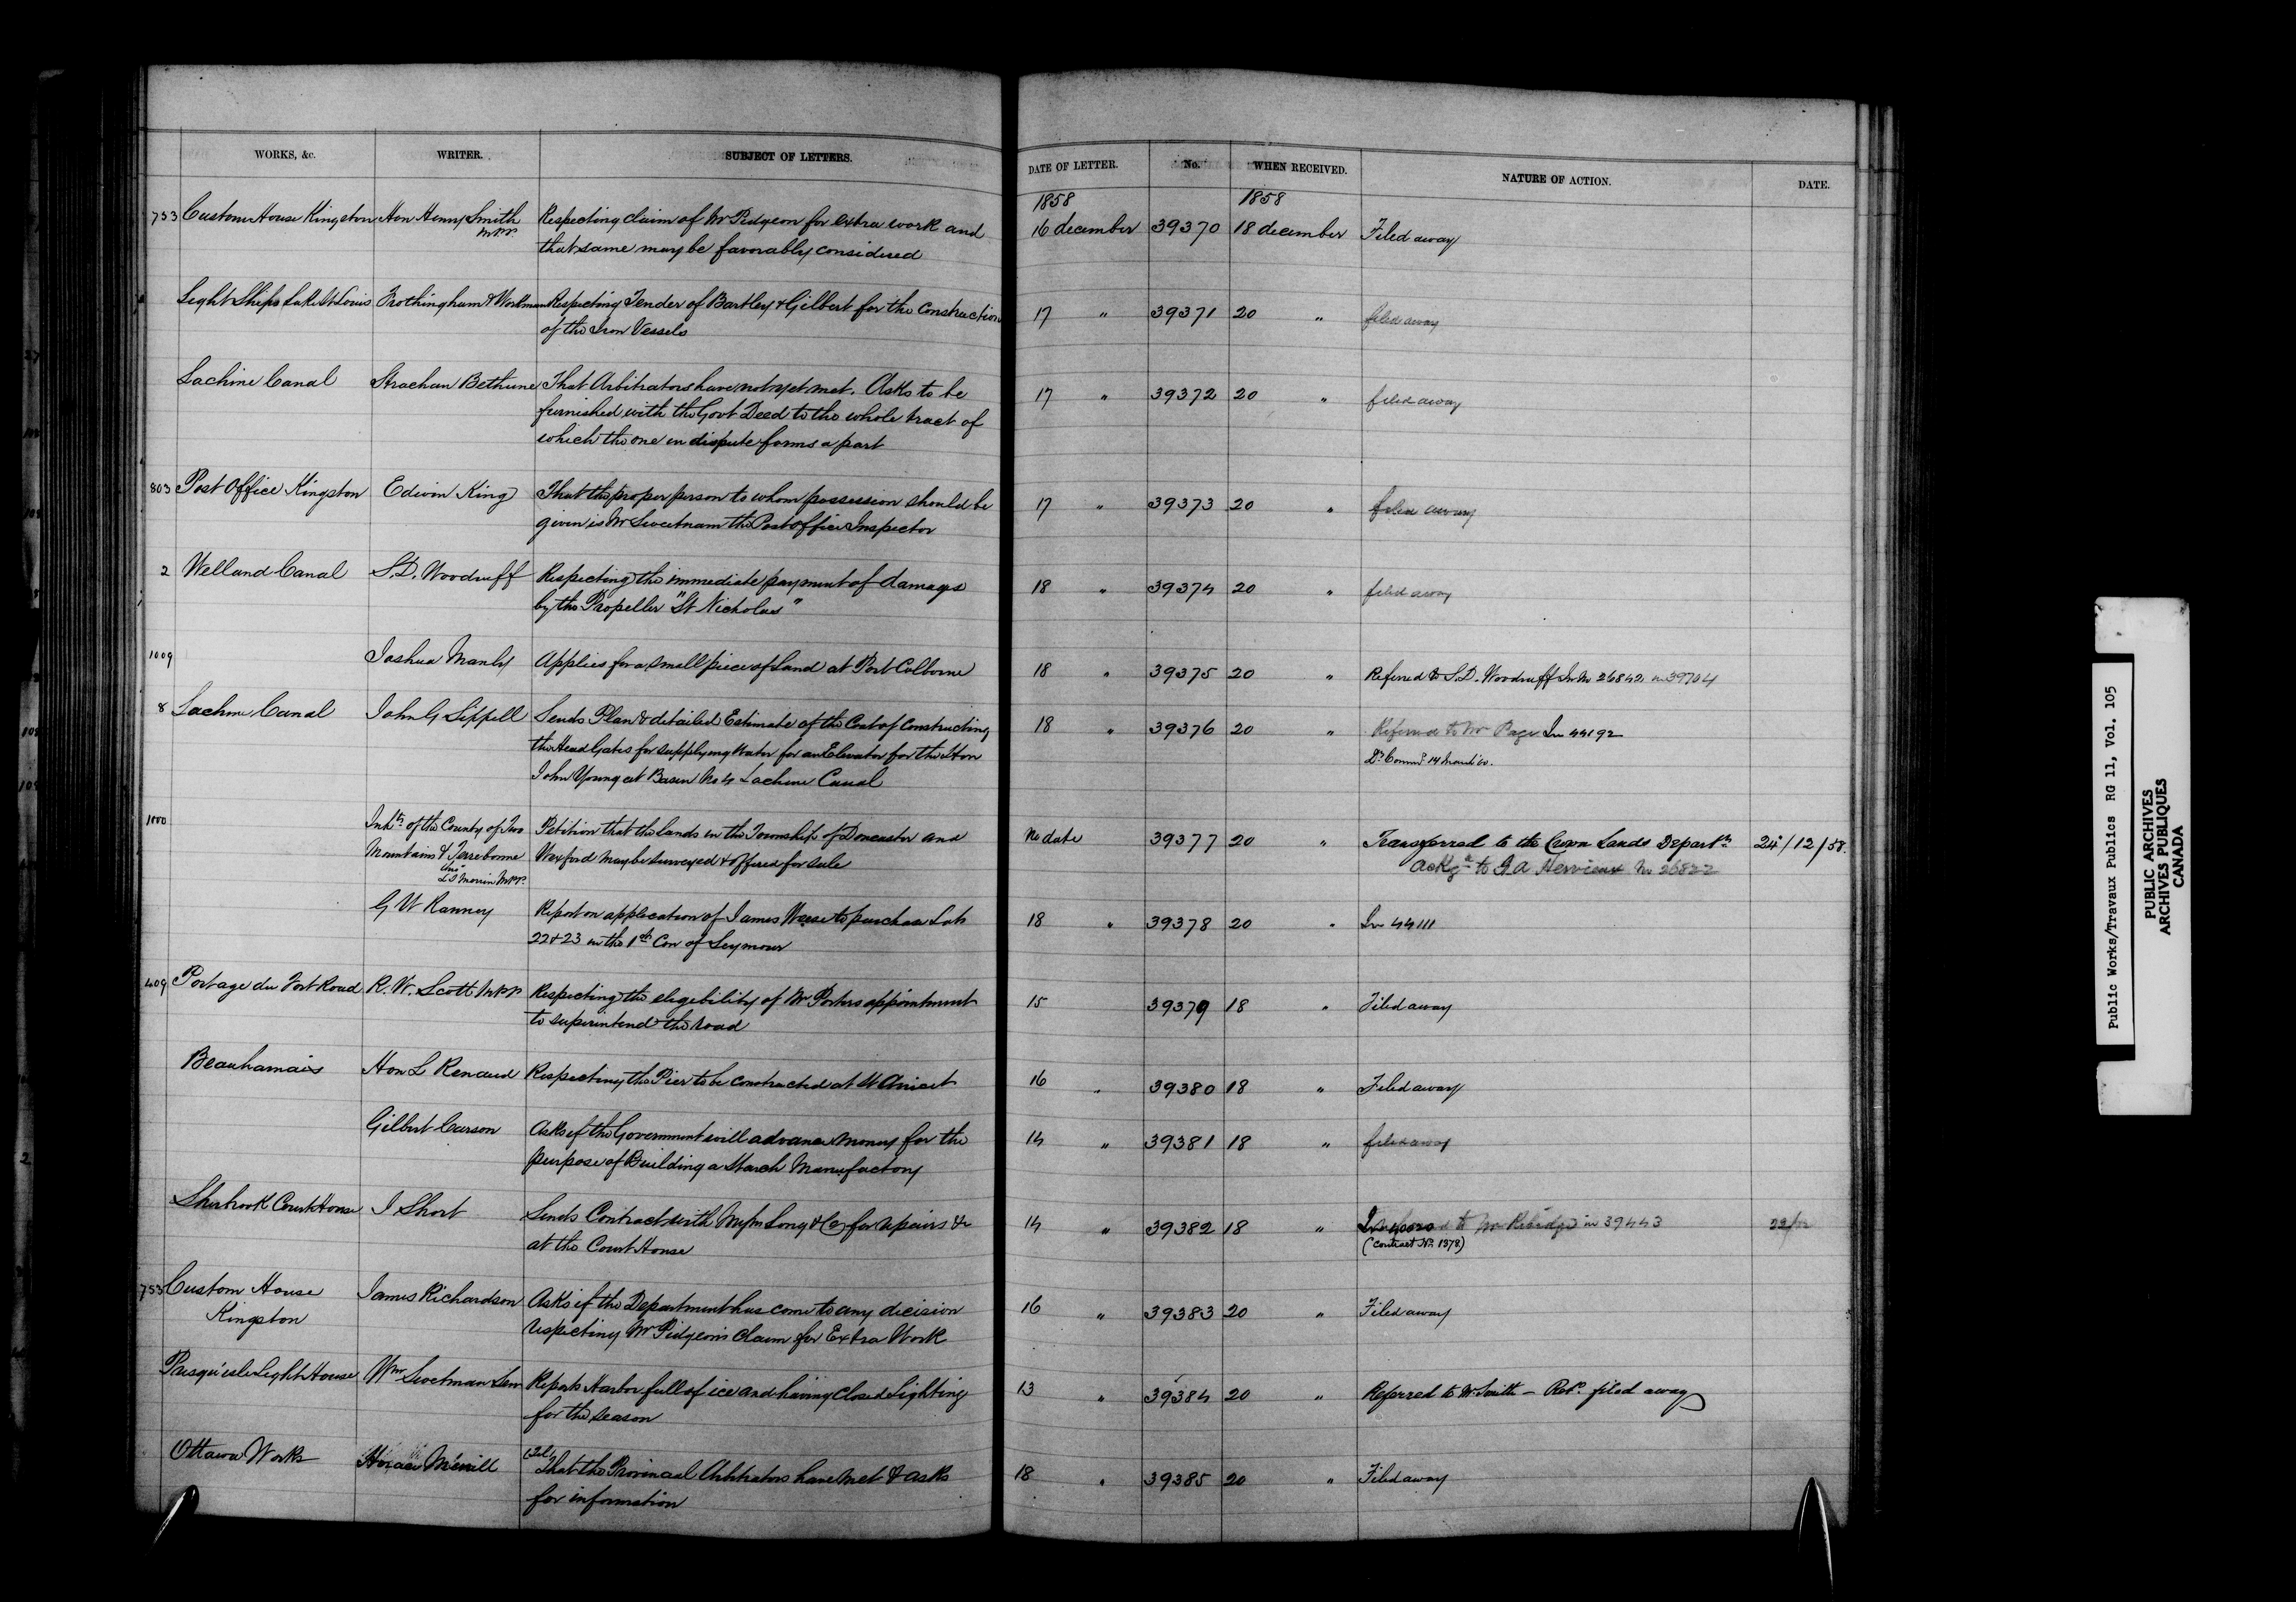 WORKS, &c. WRITER. SUBJECT OF LETTERS. DATE OF LETTER. No. WHEN RECEIVED. NATURE OF ACTION. DATE.
1858 1858
753 Custom House Kingston Hon Henry Smith Respecting claim of Mr Pidgeon for extra work and 16 december 39370 18 december Filed away
M.P.P. that same may be favorably considered
Light Ships Lake St Louis Frothingham & Workman Respecting Tender of Bartley & Gilbert for the Construction 17 " 39371 20 " filed away
of the Iron Vessels
Lachine Canal Strachan Bethune That Arbitrators have not yet met. Asks to be 17 " 39372 20 " filed away
furnished with the Govt Deed to the whole tract of
which the one in dispute forms a part
803 Post Office Kingston Edwin King That the proper person to whom possession should be 17 " 39373 20 " filed away
given is Mr Sweetnam the Post office Inspector
2 Welland Canal S. D. Woodruff Respecting the immediate payment of damages 18 " 39374 20 " filed away
by the Propeller "St Nicholas"
1009 Joshua Manly Applies for a small piece of Land at Port Colborne 18 " 39375 20 " Referred to S. D. Woodruff In No 26842 in 39704
8 Lachine Canal John G Sippell Sends Plan & detailed Estimate of the Cost of Constructing 18 " 39376 20 " Referred to Mr Page In 44192
the Head Gates for supplying Water for an Elevator for the Hon
John Young at Basin No 4 Lachine Canal
14 March 60.
1000 Inhts of the County of Two Petition that the lands in the Township of Doncaster and No date 39377 20 " Transferred to the Crown Lands Departt 24/12/58.
Mountains & Terrebonne Wexford may be surveyed & offered for sale Ackgd to G A No 26822
L S Morin M.P.P.
G W Ranney Report on application of James Weese to purchase Lots 18 " 39378 20 " In 44111
22 & 23 in the 1st Con of Seymour
409 Portage du Fort Road R. W. Scott M.P.P. Respecting the elegebility of Mr Porters appointment 15 39379 18 " Filed away
to superintend the road
Beauharnais Hon L Renaud Respecting the Pier to be constructed at St Anicet 16 " 39380 18 " Filed away
Gilbert Curson Asks if the Government will advance money for the 14 " 39381 18 " filed away
purpose of Building a Starch Manufactory
Sherbrook Court House J Short Sends Contract with Long & Co for repairs &c 14 " 39382 18 " to Mr in 39443
at the Court House (Contract No. 1378)
753 Custom House James Richardson Asks if the Department has come to any decision 16 " 39383 20 " Filed away
Kingston respecting Mr Pidgeons claim for Extra Work
Presqu'isle Light House Wm Swetman Sen Reports Harbor full of ice and having closed Lighting 13 " 39384 20 " Referred to Mr Smith — Retd. filed away
for the season
Ottawa Works Horace Merrill (Tel) That the Provincial Arbitrators have met & asks 18 " 39385 20 " Filed away
for information
Public Works/Travaux Publics RG 11, Vol. 105
PUBLIC ARCHIVES
ARCHIVES PUBLIQUES
CANADA